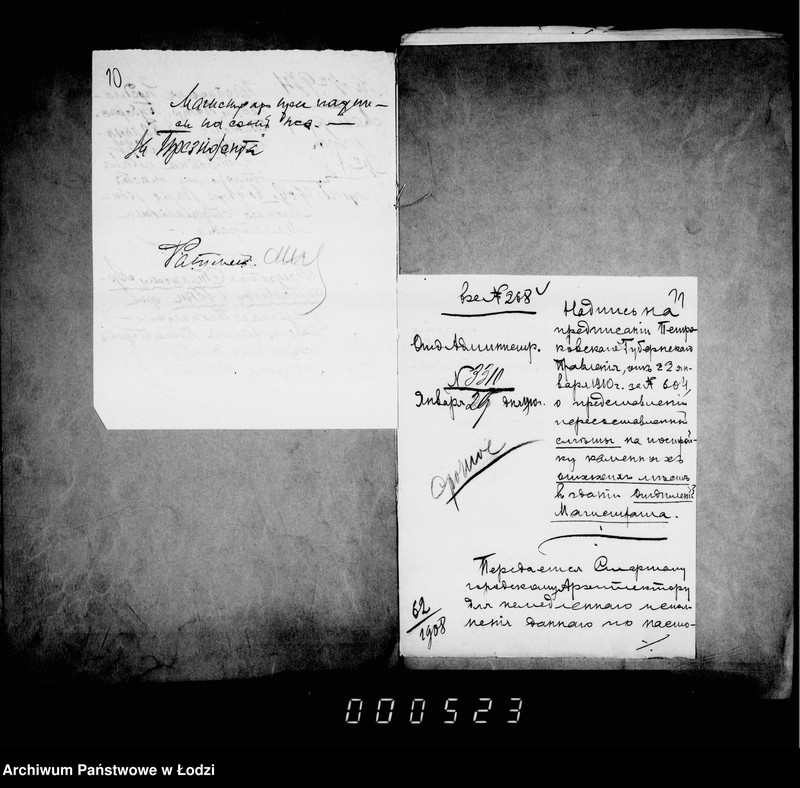 10
Магистратъ при надпи-
си на
За Президента
11
вх № 268
Отд. Административ.
№ 3310
Января 26 дня 1910 г.
срочное
Надпись на
предписаніи Петро-
ковскаго Губернскаго
Правленія, отъ 22 ян-
варя 1910 г. за № 604,
о представленіи
пересоставленной
смѣты на построй-
ку каменныхъ
отхожихъ мѣстъ
въ зданіи Отдѣленія
Магистрата.
Передается Старшему
городскому Архитектору
для немедленнаго испол-
ненія даннаго по насто-
62/1908
000523
Archiwum Państwowe w Łodzi